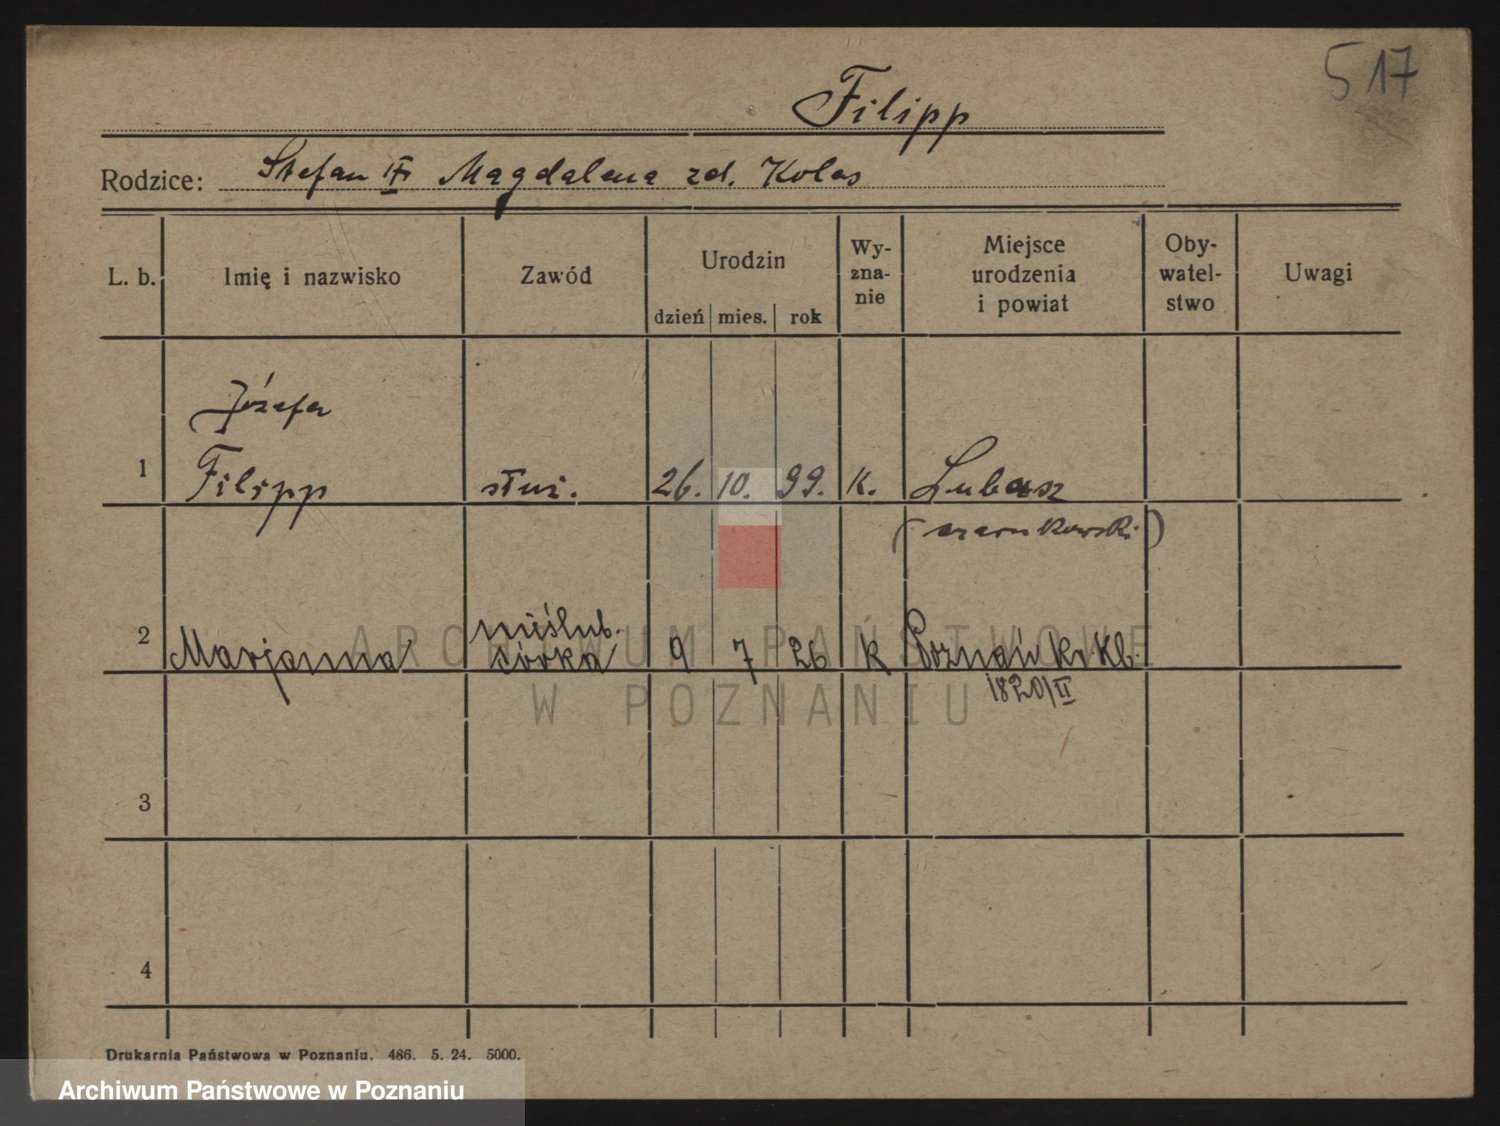 517
Filipp
Rodzice: Stefan i Magdalena zd. Kolas
L. b. Imię i nazwisko Zawód Urodzin dzień mies. rok Wy-zna-nie Miejsce urodzenia i powiat Oby-watel-stwo Uwagi
Józefa
1 Filipp służ. 26. 10. 99. k. Lubasz
(czarnkowski)
nieślub.
2 Marjanna córka 9 7 26 k Poznań kr Kl.
1820/II
3
4
ARCHIWUM PAŃSTWOWE
W POZNANIU
Drukarnia Państwowa w Poznaniu. 486. 5. 24. 5000.
Archiwum Państwowe w Poznaniu